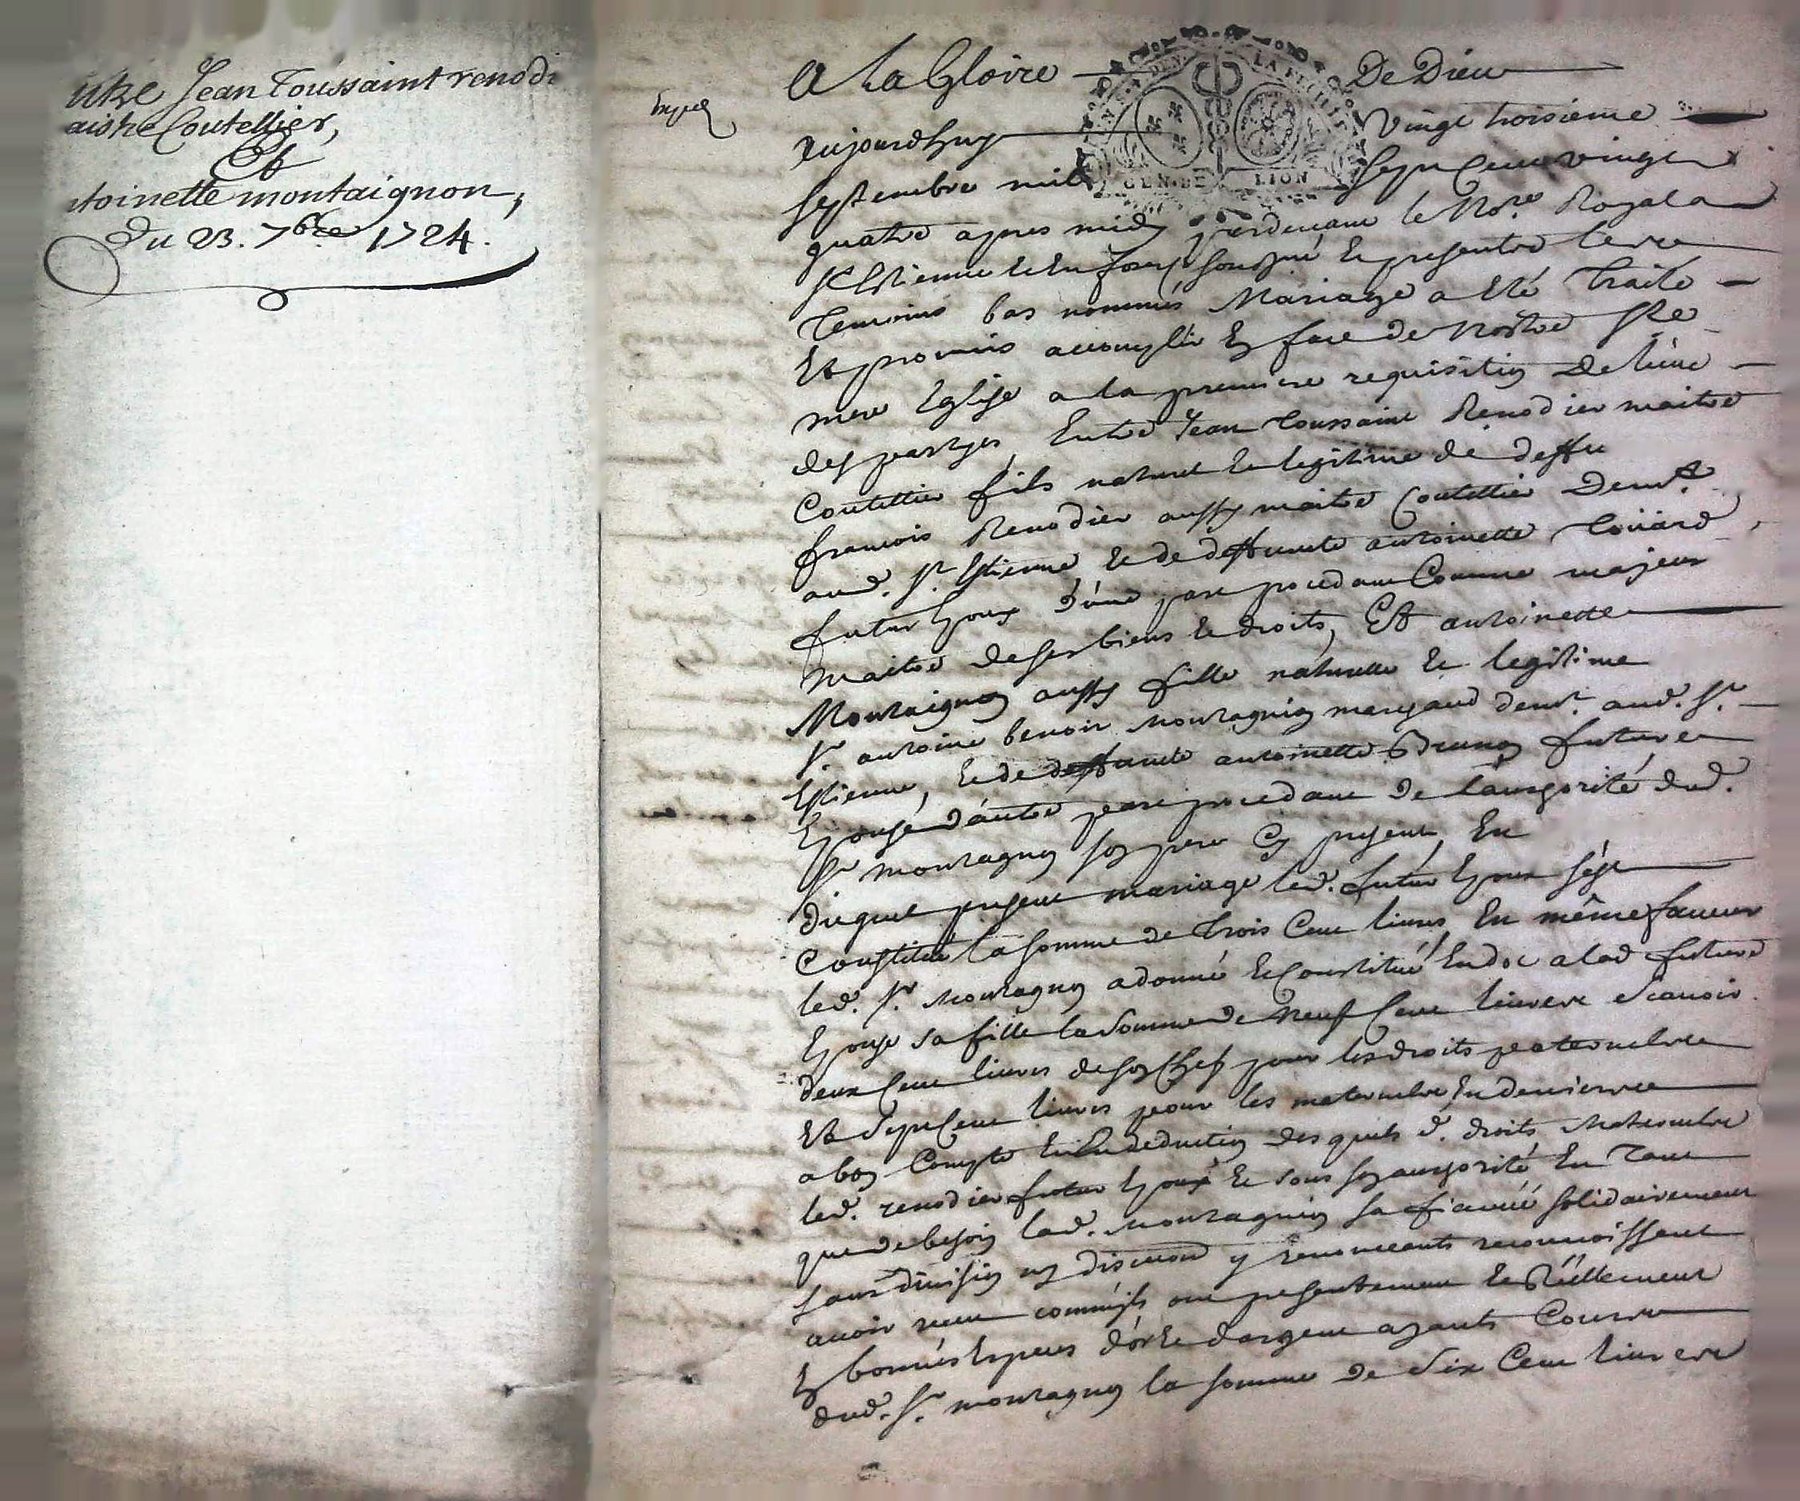 Jean Toussaint renodi
Coutellier,
Et
toinette montaignon,
Du 23. 7bre 1724.
A La Gloire De Dieu
Aujourdhuy Vingt troisieme
Septembre mil Sept Cent vingt
quatre apres midy pardevant le Nore. Royal a
St Estienne En foretz soussigné Et presents les
Temoins bas nommés Mariage a Eté Traité
Et promis accomplir En face de Nostre Ste
mere Eglise a la premiere requisition De l'une
des partyes, Entre Jean Toussaint Renodier maitre
Coutellier fils naturel Et legitime de deffu
francois Renodier aussy maitre Coutellier Demt
aud. St. Estienne Et de deffunte antoinette
futur Epoux d'une part procedant Comme majeur
Maitre de ses biens Et droits, Et antoinette
Montaignon aussy fille naturelle Et legitime
Sr. antoine benoir Montagnon marchand demt. aud. St.
Estienne, Et de deffunte antoinette Brunon future
Epouse d'autre part procedant De l'authorité dud.
Sr montagnon son pere Cy present, En
duquel present mariage led. futur Epoux s'est
Constitué la somme de trois Cent livres, En même faveur
led. Sr. Montagnon a donné Et Constitué En dot a lad future
Epouse sa fille la Somme de Neuf Cent livres Scavoir
deux Cent livres de son Chef pour les droits paternels
Et Sept Cent livres pour les maternels En
a bon Compte Et En deduction desquels d. droits Maternels
led. renodier futur Epoux Et sous son authorité En Tant
que de besoin lad. Montagnon sa fiancée solidairement
sans division ny discution y renonceants reconnoissent
avoir receu comme ils ont presentement Et Réellement
En bonnes Especes d'or Et d'argent ayants Cours
dud. Sr. montagnon la somme de Six Cent livres
GEN DE LION